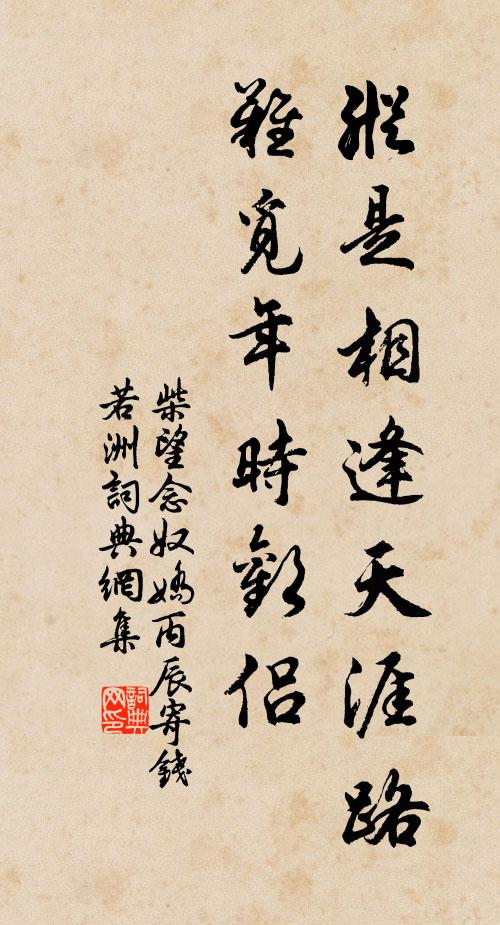 縱是相逢天涯路
難覓年時歡侶
柴望念奴嬌丙辰寄錢
若洲詞典網集
詞典网印